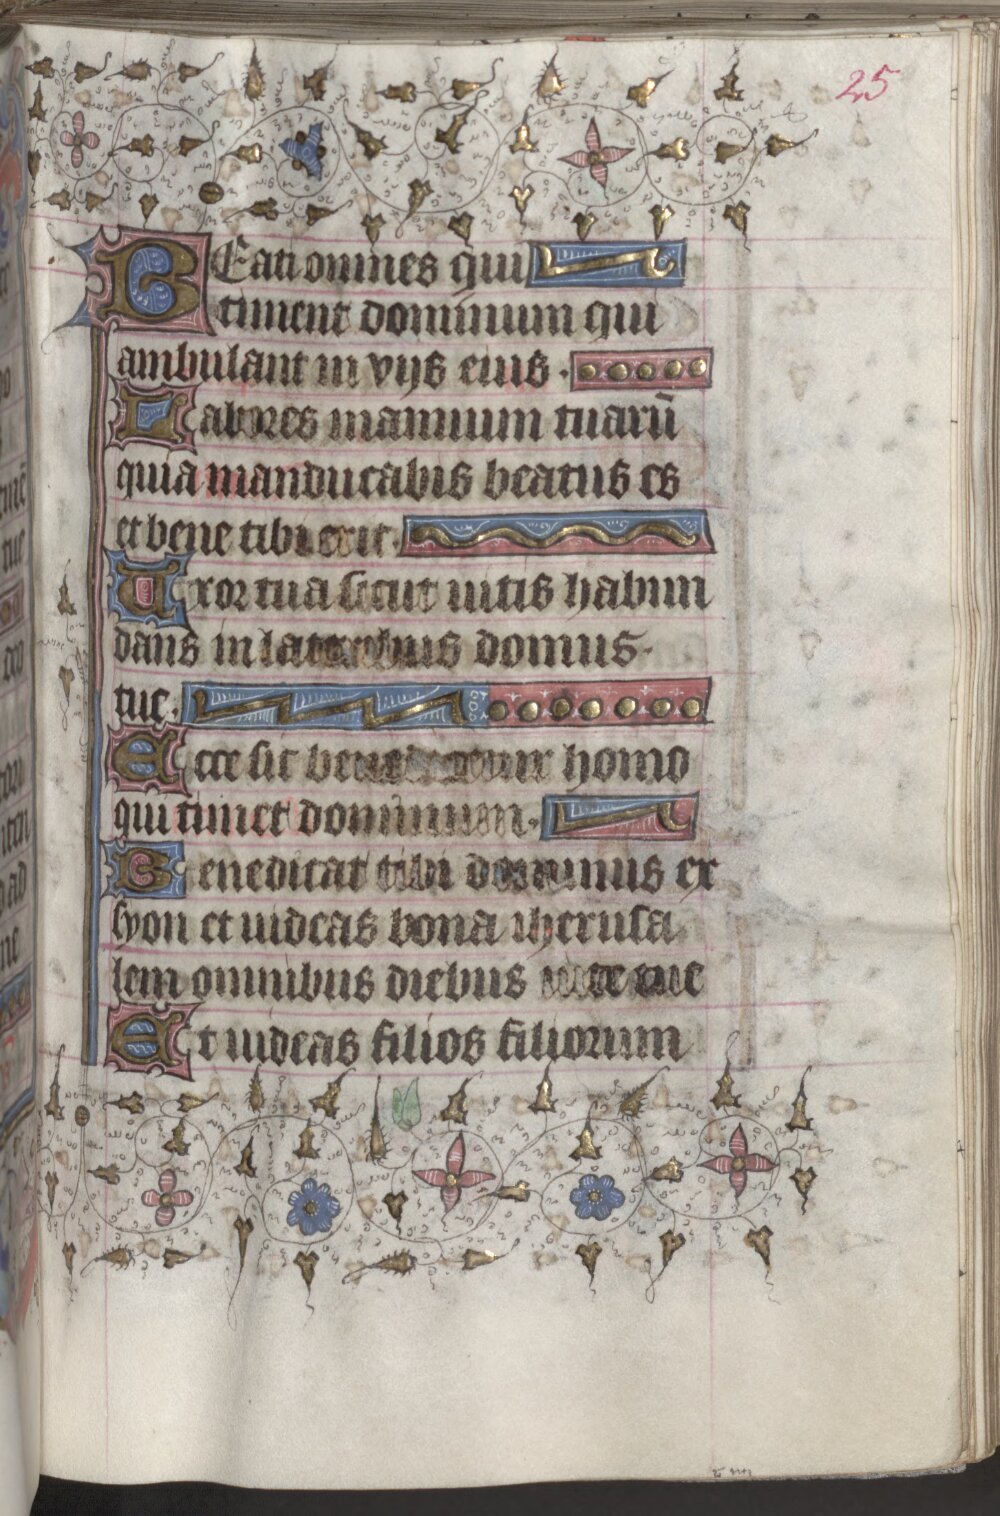 25
Beati omnes qui
timent dominum qui
ambulant in vijs eius.
Labores manuum tuarū
quia manducabis beatus es
et bene tibi erit.
Uxor tua sicut uitis habun
dans in lateribus domus
tue.
Ecce sic benedicetur homo
qui timet dominum.
Benedicat tibi dominus ex
syon et uideas bona iherusa
lem omnibus diebus uite tue
Et uideas filios filiorum